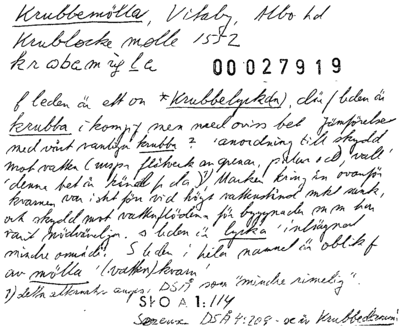 Krubbemölla, Vitaby, Albo hd
Krublocke mølle 1572
00027919
f leden är ett on *Krubbelyckan), där f leden är
krubba i komp, men med oviss bet. Jämförelse
med vårt vanliga krubba ? 'anordning till skydd
mot vatten (urspr flätverk av grenar, pålar o d, vall'
denna bet är känd f da 1) Marken kring ån ovanför
kvarnen var i sht förr vid högt vattenstånd mkt sank,
och skydd mot vattenflöden för byggnader m m har
varit nödvändiga. s leden är lycka 'inhägnat
mindre område'. S leden i hela namnet är oblik f
av mölla '(vatten)kvarn'
1) detta alternativ anges i DSÅ som "mindre rimelig".
SkO A 1:114
DSÅ 4:209 - se är Krubbedrum!